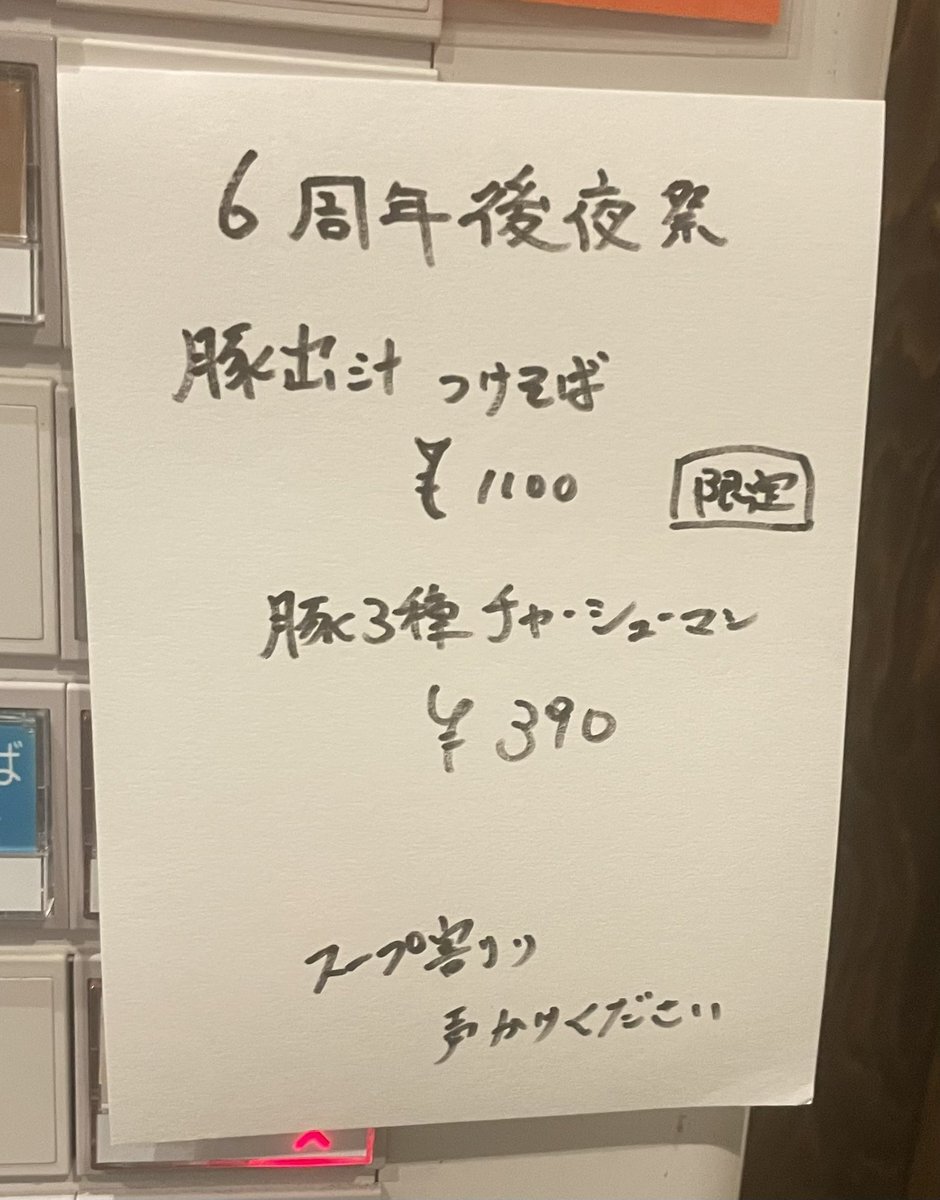 6周年後夜祭
豚出汁 つけそば
¥1100
限定
豚3種チャーシューマシ
¥390
スープ割り
声かけください
ば